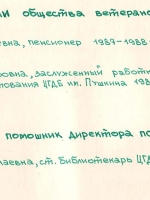 ли общества ветеран
евна, пенсионер 1987-1988
ровна, заслуженный работн
ования ЦГДБ им. Пушкина 198
помошник директора по
лаевна, ст. Библиотекарь ЦГД